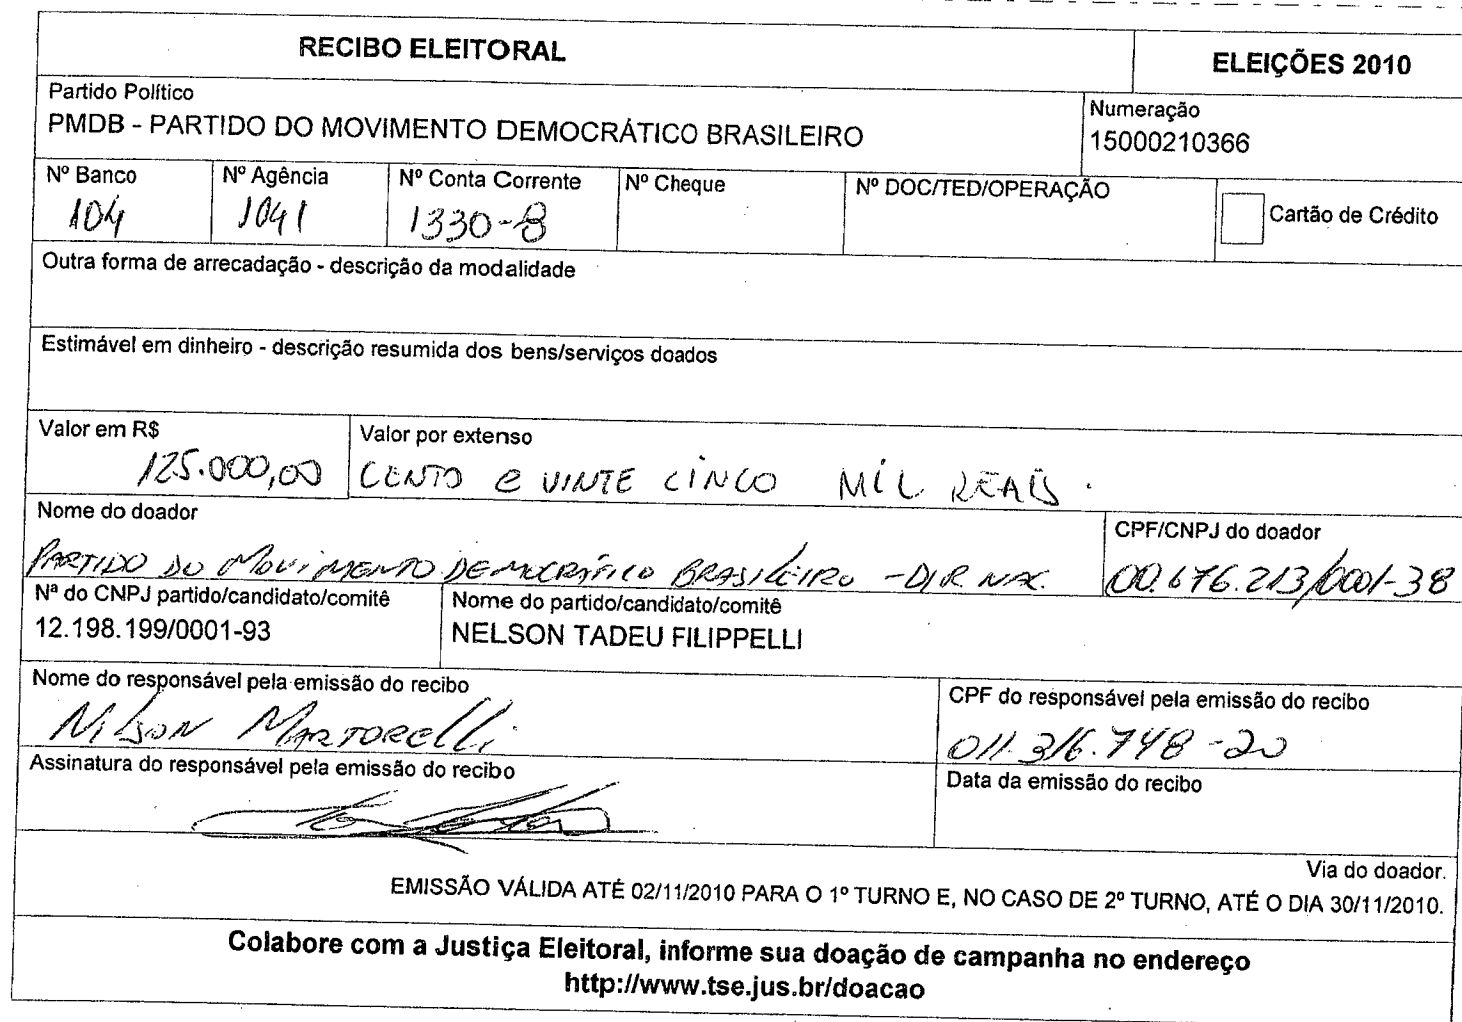 RECIBO ELEITORAL
ELEIÇÕES 2010
Partido Político
PMDB - PARTIDO DO MOVIMENTO DEMOCRÁTICO BRASILEIRO
Numeração
15000210366
Nº Banco
104
Nº Agência
1041
Nº Conta Corrente
1330-8
Nº Cheque
Nº DOC/TED/OPERAÇÃO
Cartão de Crédito
Outra forma de arrecadação - descrição da modalidade
Estimável em dinheiro - descrição resumida dos bens/serviços doados
Valor em R$
125.000,00
Valor por extenso
CENTO e VINTE CINCO MIL REAIS.
Nome do doador
PARTIDO DO MOVIMENTO DEMOCRÁTICO BRASILEIRO - DIR NAC.
CPF/CNPJ do doador
00.676.213/0001-38
Nª do CNPJ partido/candidato/comitê
12.198.199/0001-93
Nome do partido/candidato/comitê
NELSON TADEU FILIPPELLI
Nome do responsável pela emissão do recibo
Nilson Martorelli
CPF do responsável pela emissão do recibo
011.316.748-20
Assinatura do responsável pela emissão do recibo
Data da emissão do recibo
Via do doador.
EMISSÃO VÁLIDA ATÉ 02/11/2010 PARA O 1º TURNO E, NO CASO DE 2º TURNO, ATÉ O DIA 30/11/2010.
Colabore com a Justiça Eleitoral, informe sua doação de campanha no endereço
http://www.tse.jus.br/doacao